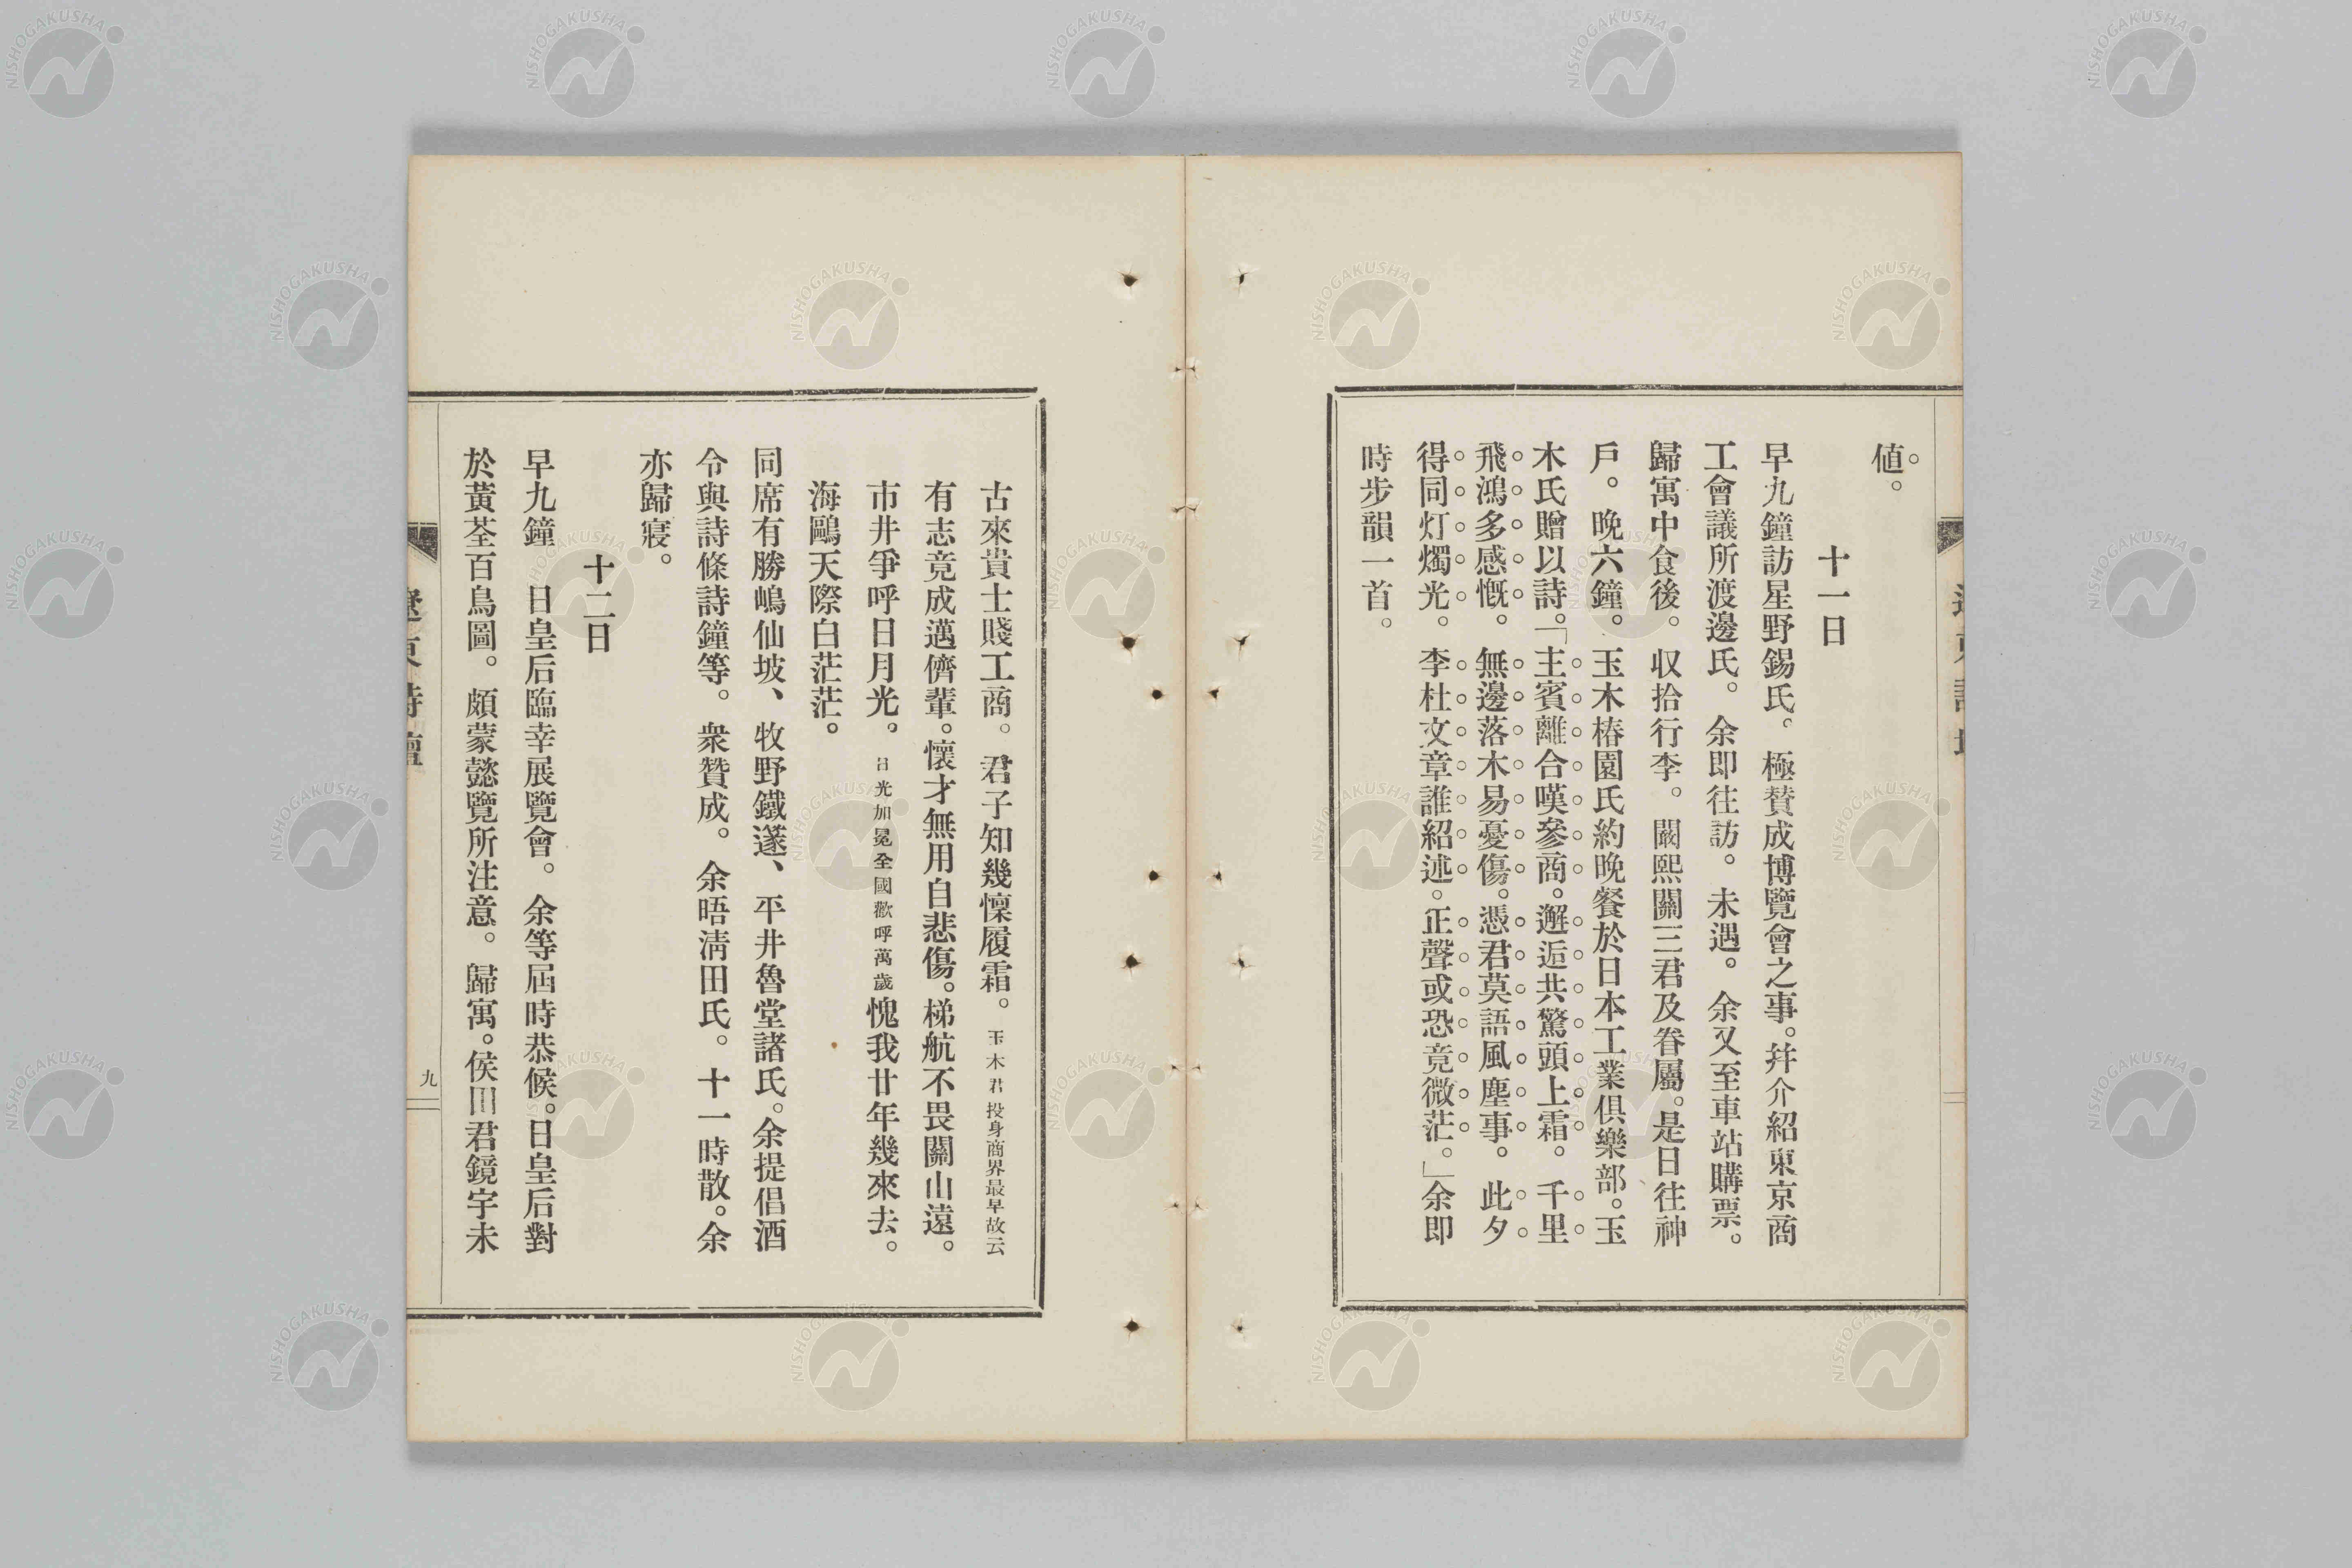 値。
十一日
早九鐘訪星野錫氏。極賛成博覽會之事。幷介紹東京商
工會議所渡邊氏。余即往訪。未遇。余又至車站購票。
歸寓中食後。収拾行李。闞熙關三君及眷屬。是日往神
戶。晚六鐘。玉木椿園氏約晚餐於日本工業俱樂部。玉
木氏贈以詩。「主賓離合嘆參商。邂逅共驚頭上霜。千里
飛鴻多感慨。無邊落木易憂傷。憑君莫語風塵事。此夕
得同灯燭光。李杜文章誰紹述。正聲或恐竟微茫。」余即
時步韻一首。
古來貴士賤工商。君子知幾懍履霜。玉木君投身商界最早故云
有志竟成邁儕輩。懷才無用自悲傷。梯航不畏關山遠。
市井爭呼日月光。日光加冕全國歡呼萬歲愧我廿年幾來去。
海鷗天際白茫茫。
同席有勝嶋仙坡、牧野鐵邃、平井魯堂諸氏。余提倡酒
令與詩條詩鐘等。衆贊成。余晤淸田氏。十一時散。余
亦歸寢。
十二日
早九鐘 日皇后臨幸展覽會。余等屆時恭候。日皇后對
於黃荃百鳥圖。頗蒙懿覽所注意。歸寓。侯田君鏡宇未
遼東詩壇
九
NISHOGAKUSHA